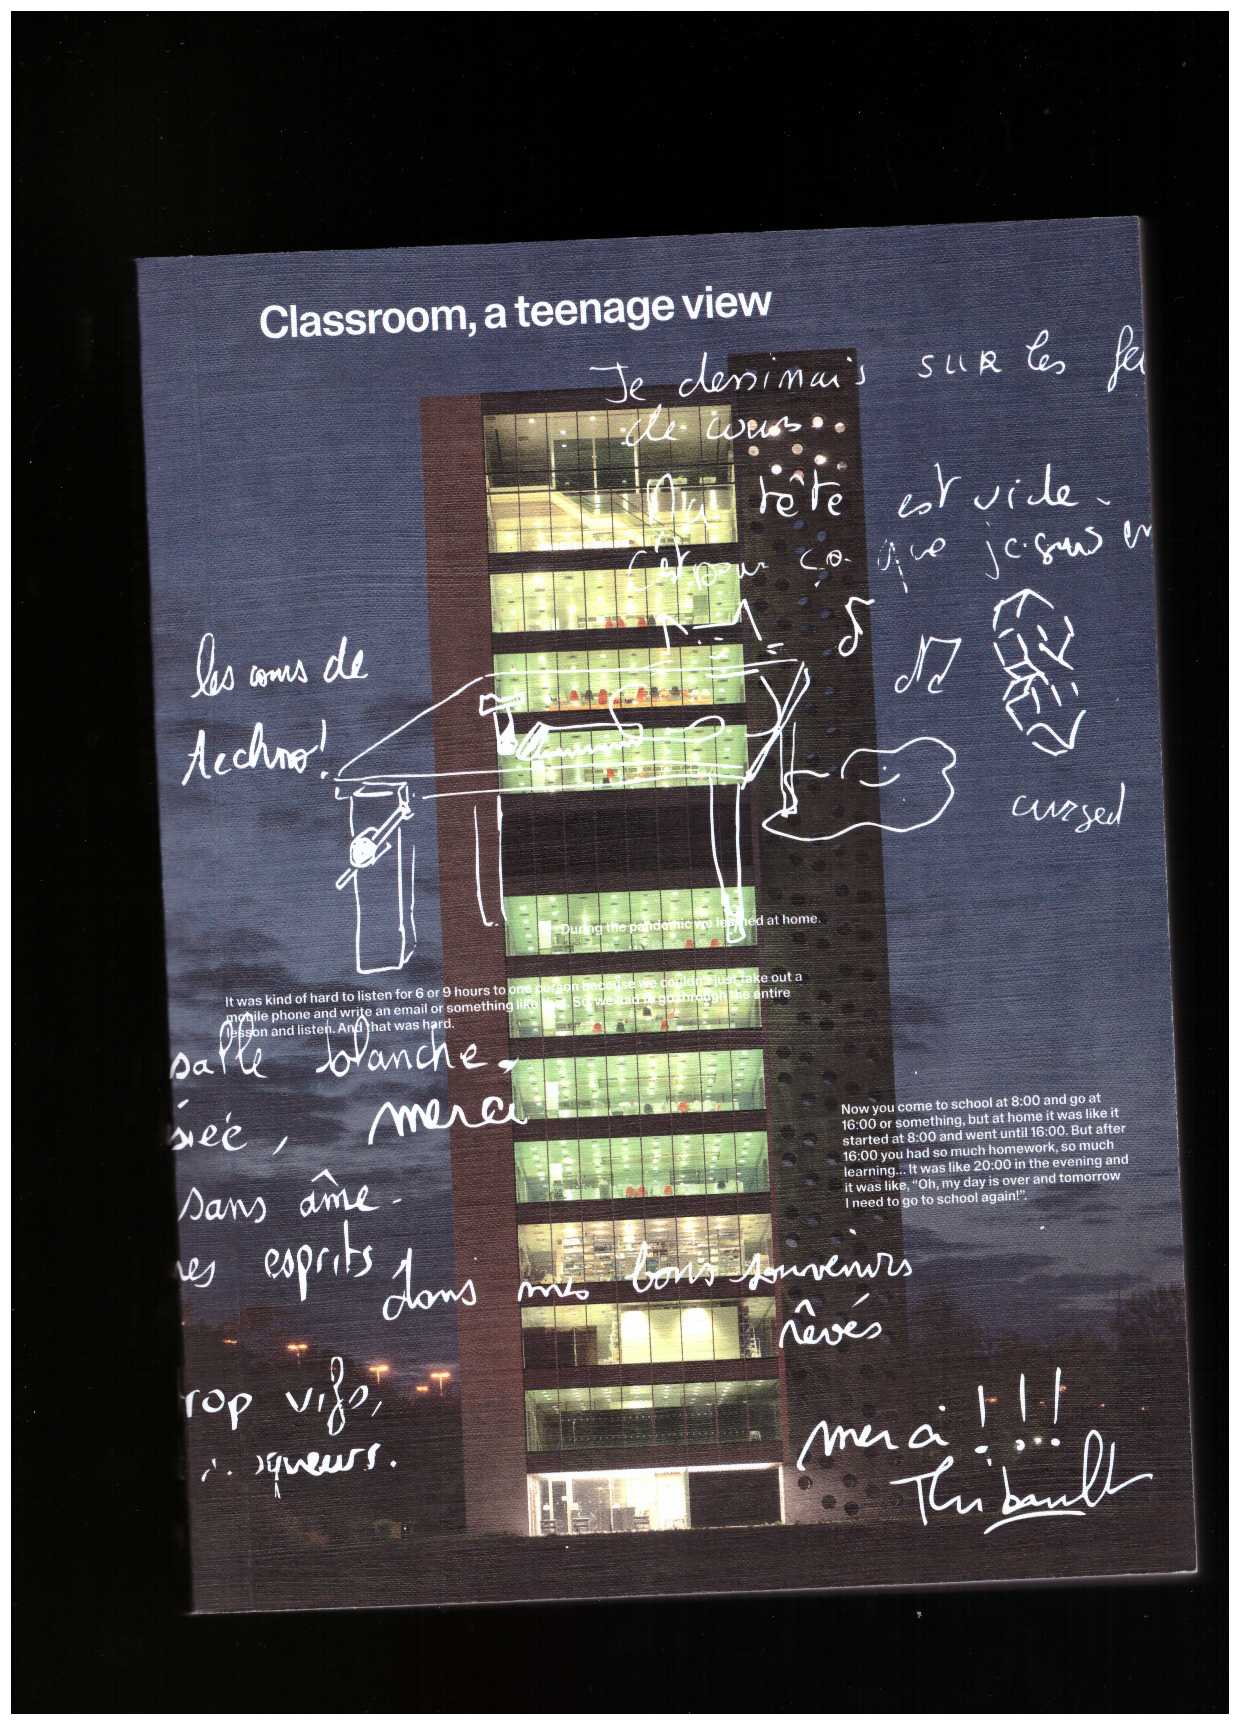 Classroom, a teenage view
Je dessinais sur les
de cours
Ma tête est vide.
C'est pour ça que je suis en
les cours de
techno!
cursed
During the pandemic we learned at home.
It was kind of hard to listen for 6 or 9 hours to one person because we couldn't just take out a
mobile phone and write an email or something like that. So, we had to go through the entire
lesson and listen. And that was hard.
salle blanche.
merci
sans âme.
esprits
dans mes bons souvenirs
rêvés
rop vifs,
queurs.
Now you come to school at 8:00 and go at
16:00 or something, but at home it was like it
started at 8:00 and went until 16:00. But after
16:00 you had so much homework, so much
learning... It was like 20:00 in the evening and
it was like, “Oh, my day is over and tomorrow
I need to go to school again!”.
merci !!!
Thibault